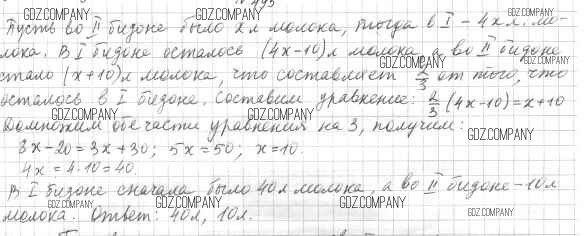 № 493
GDZ.COMPANY
Пусть во II бидоне было x л молока, тогда в I – 4x л. мо-
GDZ.COMPANY GDZ.COMPANY
лока. В I бидоне осталось (4x-10) л молока, а во II бидоне
GDZ.COMPANY GDZ.COMPANY
стало (x+10) л молока, что составляет 2/3 от того, что
осталось в I бидоне. Составим уравнение: 2/3 (4x-10) = x+10
GDZ.COMPANY GDZ.COMPANY
Домножим обе части уравнения на 3, получим:
GDZ.COMPANY
8x - 20 = 3x + 30; 5x = 50; x = 10.
GDZ.COMPANY GDZ.COMPANY
4x = 4·10 = 40.
GDZ.COMPANY
В I бидоне сначала было 40 л молока, а во II бидоне – 10 л
GDZ.COMPANY GDZ.COMPANY
молока. Ответ: 40 л, 10 л.
GDZ.COMPANY